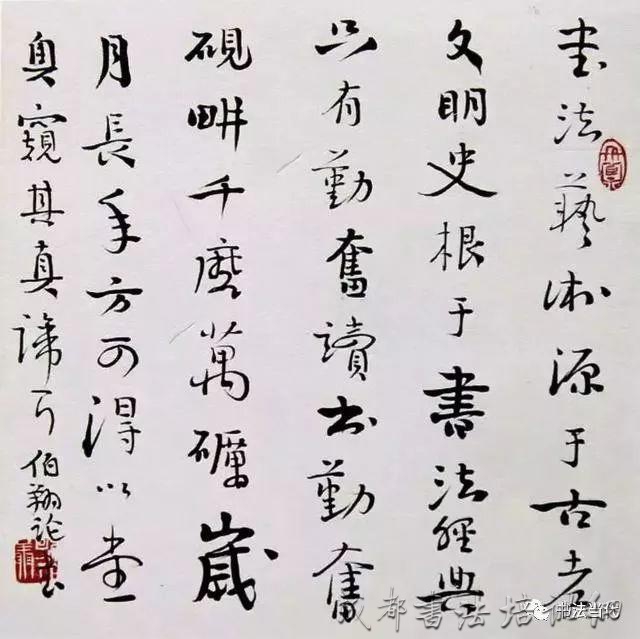 書法藝術源于古老
文明史根于書法經典
只有勤奮讀书勤奮
硯畊千磨萬礪歲
月長年方可得以堂
奥窺其真諦
伯翔論書
成都書法培
书法当代